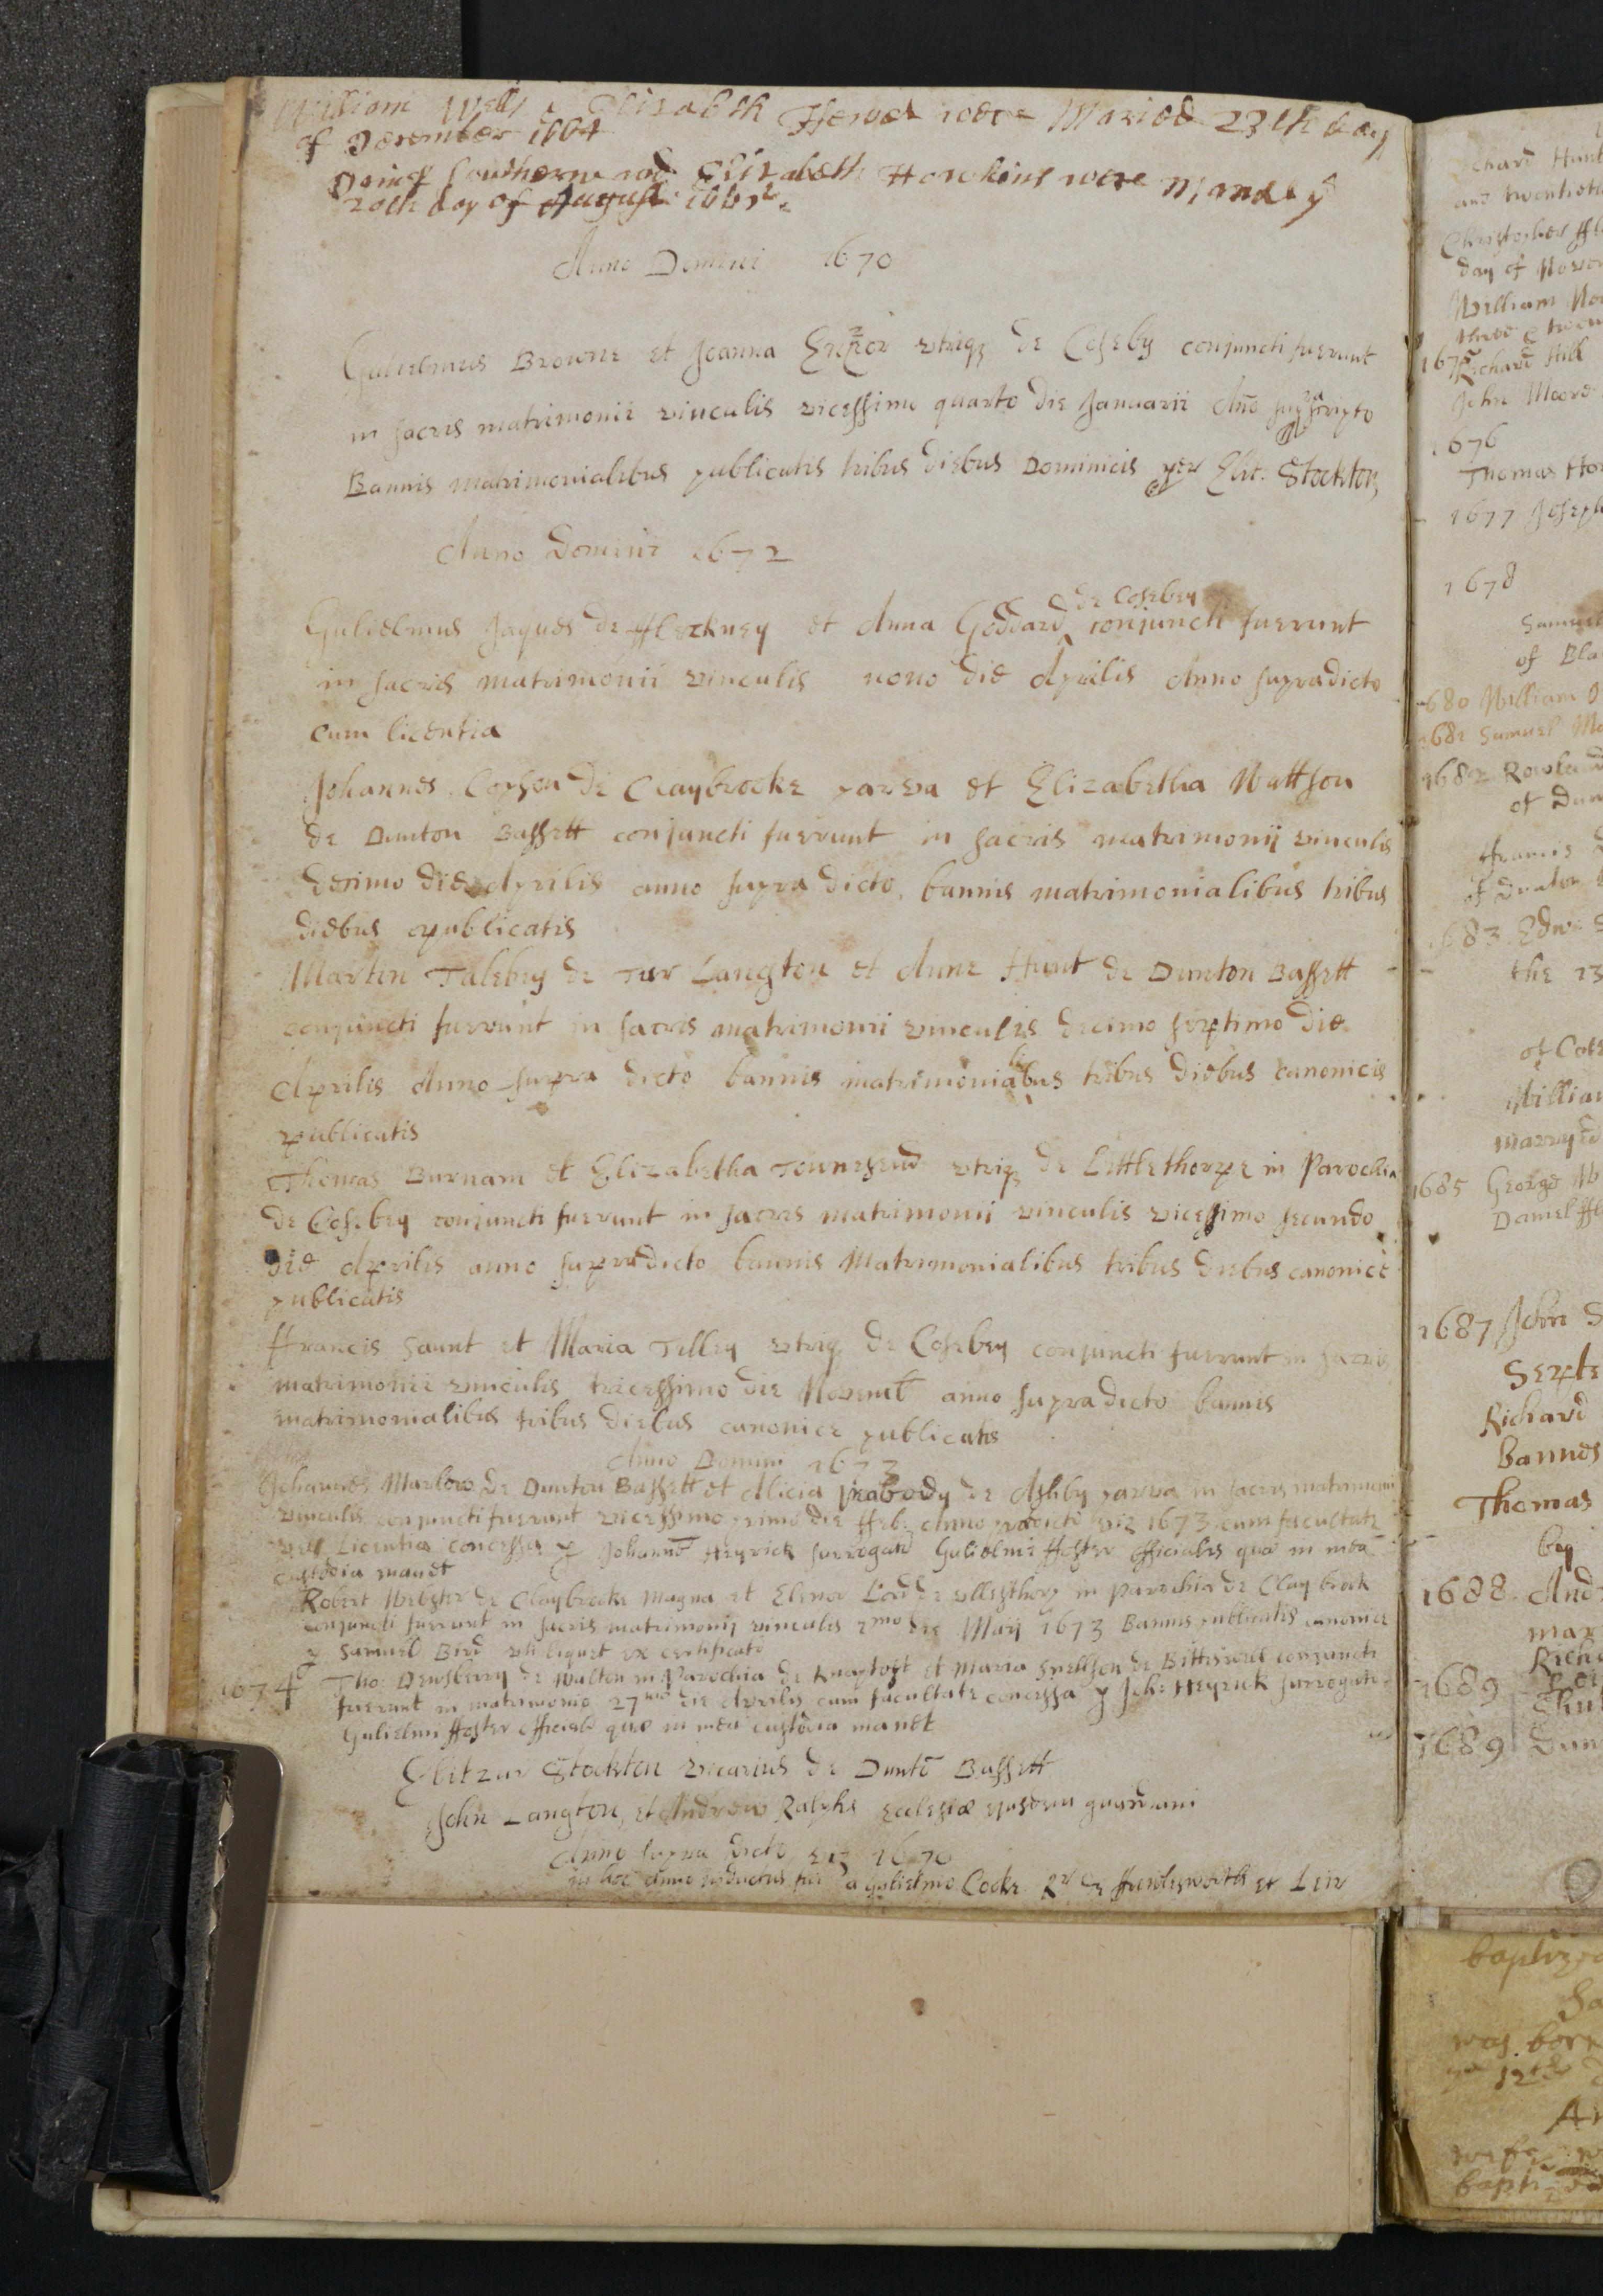 William Wells & Elizabeth Hewes were Maried 23th day
of December 1664
Southerne and Elizabeth Hawkins were Maried ye
20th day of August
Anno Domini 1670
Gulielmus Browne et Joanna utriqz de Coseby conjuncti fuerunt
in sacris matrimonii vinculis vicessimo quarto die Januarii Año suprascripto
Bannis matrimonialibus publicatis tribus diebus Dominicis per Elit: Stockton,
Anno Domini 1672
de Cosebey
Gulielmus Jaques de fflerckney et Anna Goddard conjuncti fuerunt
in sacris matrimonii vinculis nono die Aprilis Anno supradicto
cum licentia
Johannes Copson de Claybrocke parva et Elizabetha Wattson
de Dunton Bassett conjuncti fuerunt in sacris matrimonij vinculis
decimo die Aprilis anno supra dicto, bannis matrimonialibus tribus
diebus publicatis
Martin Talebey de Tur Langton et Anne Hunt de Dunton Bassett
conjuncti fuerunt in sacris matrimonii vinculis decimo septimo die
Aprilis Anno supra dicto bannis matrimonialibus tribus diebus canonicis
publicatis
Thomas Burnam et Elizabetha Townesend utriqz de Littlethorpe in Parochia
de Cosebey conjuncti fuerunt in sacris matrimonii vinculis vicessimo secundo
die Aprilis anno supradicto bannis Matrimonialibus tribus diebus canonice
publicatis
ffrancis Saunt et Maria Tilley utriq de Cosebey conjuncti fuerunt in sacris
matrimonii vinculis tricessimo die Novemb anno supradicto bannis
matrimonialibus tribus diebus canonice publicatis
Anno Domini 1673
Johannes Marlow de Dunton Bassett et Alicia Peabody de Ashby parva in sacris matrimonii
vinculis conjuncti fuerunt vicessimo primo die ffeb: Anno viz 1673 cum facultate
Licentia concessa p Johanne Heyrick surrogato Gulielmi ffoster officialis quæ in mea
custodia manet
Robert Webster de Claybrocke Magna et Elenor Lord de Ullesthorp in parochia de Claybrock
conjuncti fuerunt in sacris matrimonij vinculis 2mo die Maij 1673 Bannis publicatis canonice
p Samuel Bird uti liquet ex certificato
1674 Tho: Dewsberry de Walton in Parochia de Knaptoft et Maria Snellson de Bitteswell conjuncti
fuerunt in matrimonio 27mo die Aprilis cum facultate concessa p Joh: Heyrick surrogato
Gulielmi ffoster officiali quæ in mea custodia manet
Elitzur Stockton vicarius de Duntō Bassett
John Langton, et Andrew Ralphs Ecclesiæ ejusdem guardiani
Anno supra dicto viz 1670
in hoc Anno inductus fui a gulielmo Cocke Rr de ffrowlesworth et Leir
chard Hunt
and twentieth
Christopher
day of Novem
William
three &
1675 Richard Hill
John Moore
1676
Thomas
1677 Joseph
1678
Samuel
of Bla
1680 William
1682 Samuel
1682 Rowland
of Dun
ffrancis
of Dunton
1683
the 13
of
William
marryed
1685 George
Daniel
1687 John S
Septe
Richard
bannes
Thomas
by
1688 And
mar
Rich
1689
1689 Dun
baptized
was born
ye 12th
wife